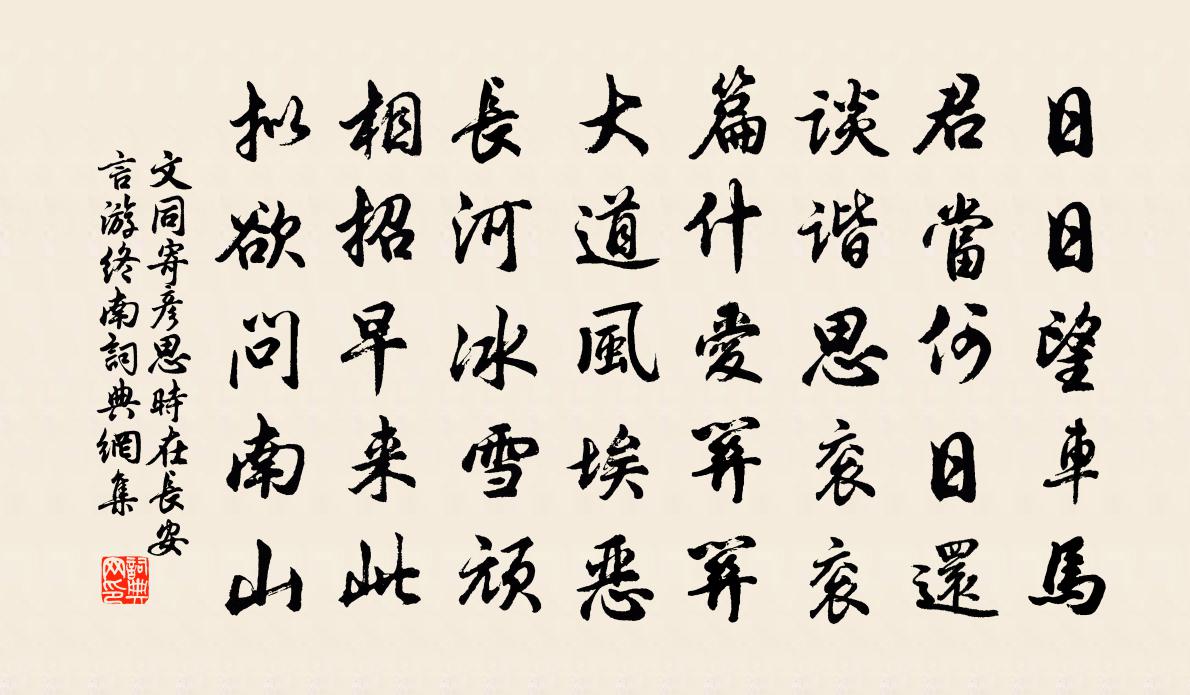 日日望車馬
君當何日還
談諧思衮衮
篇什愛
大道風埃惡
長河冰雪頑
相招早来此
拟欲問南山
文同寄彥思時在長安
言游終南詞典網集
詞典网印